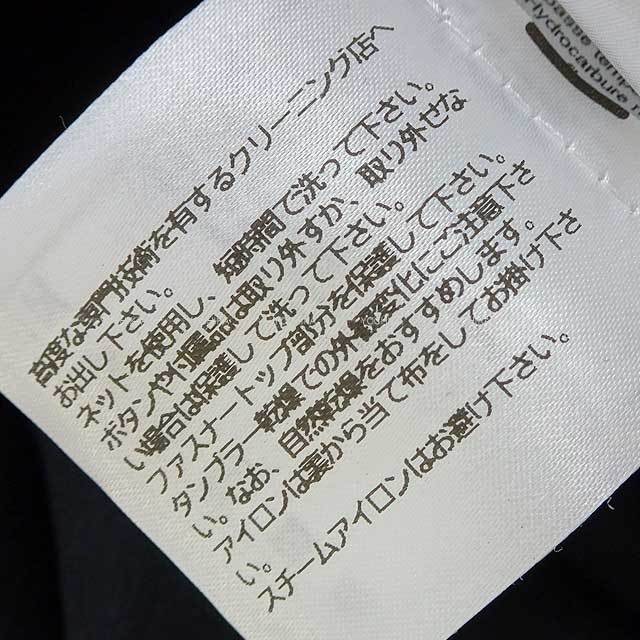 basse temp
Hydrocarbure
高度な専門技術を有するクリーニング店へ
お出し下さい。
ネットを使用し、短時間で洗って下さい。
ボタンや付属品は取り外すか、取り外せな
い場合は保護して洗って下さい。
ファスナートップ部分を保護して下さい。
タンブラー乾燥での外観変化にご注意下さ
い。なお、自然乾燥をおすすめします。
アイロンは裏から当て布をしてお掛け下さ
い。
スチームアイロンはお避け下さい。